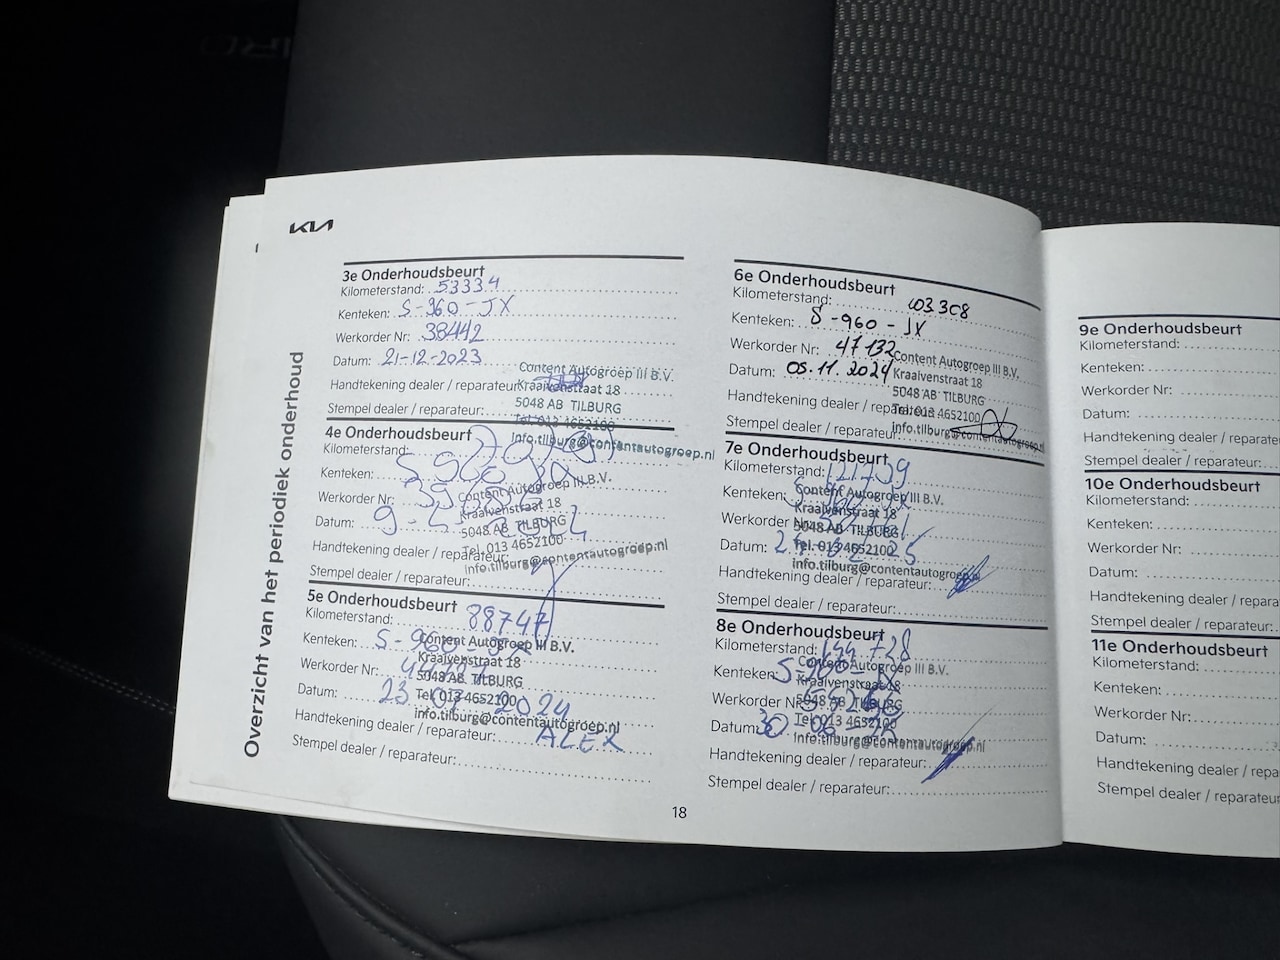 KIA
Overzicht van het periodiek onderhoud
3e Onderhoudsbeurt
Kilometerstand: 53334
Kenteken: S-960-JX
Werkorder Nr: 38442
Datum: 21-12-2023
Handtekening dealer / reparateur:
Stempel dealer / reparateur:
Content Autogroep III B.V.
Kraaivenstraat 18
5048 AB TILBURG
Tel. 013 4652100
info.tilburg@contentautogroep.nl
4e Onderhoudsbeurt
Kilometerstand:
Kenteken: S 960 JX
Werkorder Nr:
Datum:
Handtekening dealer / reparateur:
Stempel dealer / reparateur:
Content Autogroep III B.V.
Kraaivenstraat 18
5048 AB TILBURG
Tel. 013 4652100
info.tilburg@contentautogroep.nl
5e Onderhoudsbeurt
Kilometerstand: 88747
Kenteken: S-960-JX
Werkorder Nr:
Datum: 23 07 2024
Handtekening dealer / reparateur: ALEX
Stempel dealer / reparateur:
Content Autogroep III B.V.
Kraaivenstraat 18
5048 AB TILBURG
Tel. 013 4652100
info.tilburg@contentautogroep.nl
6e Onderhoudsbeurt
Kilometerstand: 103308
Kenteken: S-960-JX
Werkorder Nr: 47132
Datum: 05.11.2024
Handtekening dealer / reparateur:
Stempel dealer / reparateur:
Content Autogroep III B.V.
Kraaivenstraat 18
5048 AB TILBURG
Tel. 013 4652100
info.tilburg@contentautogroep.nl
7e Onderhoudsbeurt
Kilometerstand: 121739
Kenteken:
Werkorder Nr:
Datum:
Handtekening dealer / reparateur:
Stempel dealer / reparateur:
Content Autogroep III B.V.
Kraaivenstraat 18
5048 AB TILBURG
Tel. 013 4652100
info.tilburg@contentautogroep.nl
8e Onderhoudsbeurt
Kilometerstand: 144728
Kenteken: S-960-JX
Werkorder Nr:
Datum:
Handtekening dealer / reparateur:
Stempel dealer / reparateur:
Content Autogroep III B.V.
Kraaivenstraat 18
5048 AB TILBURG
Tel. 013 4652100
info.tilburg@contentautogroep.nl
18
9e Onderhoudsbeurt
Kilometerstand:
Kenteken:
Werkorder Nr:
Datum:
Handtekening dealer / repara
Stempel dealer / reparateur:
10e Onderhoudsbeurt
Kilometerstand:
Kenteken:
Werkorder Nr:
Datum:
Handtekening dealer / repara
Stempel dealer / reparateur:
11e Onderhoudsbeurt
Kilometerstand:
Kenteken:
Werkorder Nr:
Datum:
Handtekening dealer / repa
Stempel dealer / reparateur